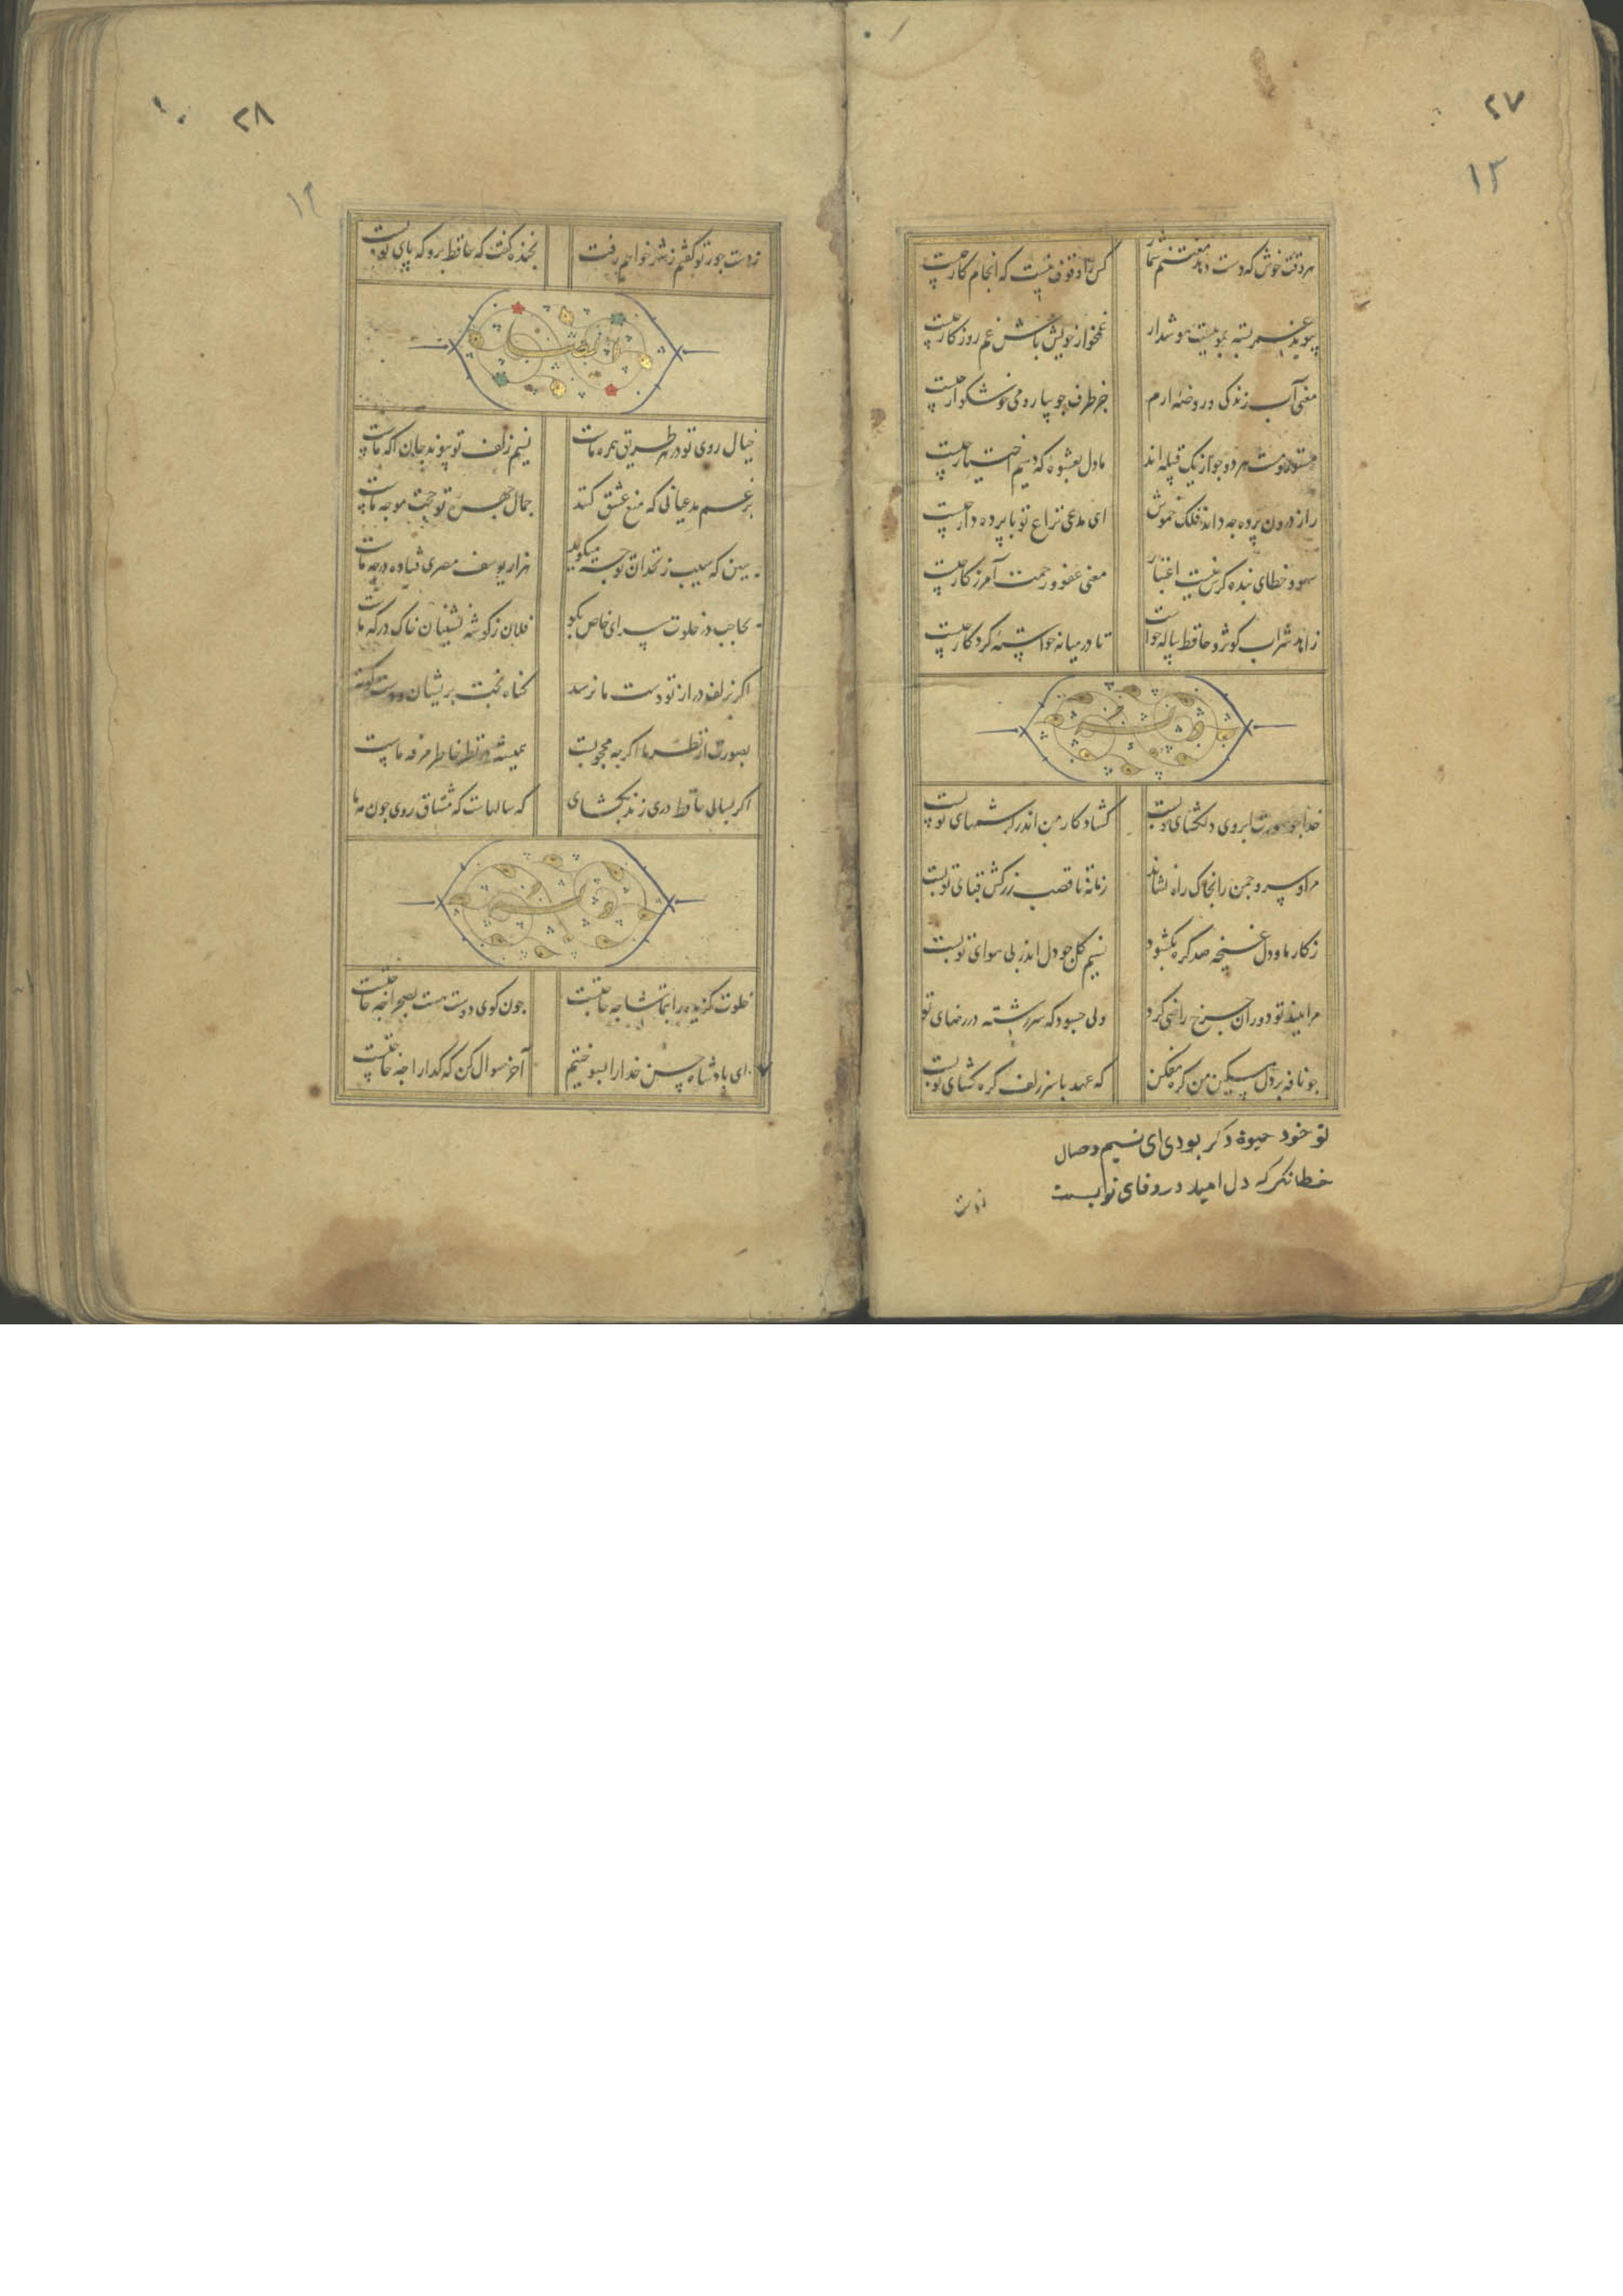 ۲۷
۱۳
هر وقت خوش که دست دهد مغتنم شمار
کس را وقوف نیست که انجام کار چیست
پیوند عمر بسته بمویست هوشدار
غمخوار خویش باش غم روزکار چیست
معنی آب زندکی و روضهٔ ارم
جز طرف جویبار و می خوشکوار چیست
مستور و مست هر دو جو از یک قبیله اند
ما دل بعشوهٔ که دهیم اختیار چیست
راز درون پرده جه داند فلک خموش
ای مدعی نزاع تو با پرده دار چیست
سهو و خطای بنده کرش نیست اعتبار
معنی عفو و رحمت آمرزکار چیست
زاهد شراب کوثر و حافظ پیاله خواست
تا در میانه خواستهٔ کردکار چیست
خدا جو صورت ابروی دلکشای تو بست
کشاد کار من اندر کرشمهای تو بست
مرا و سرو جمن را بخاک راه نشاند
زمانه تا قصب زرکش قبای تو بست
ز کار ما و دل غنچه صد کره بکشود
نسیم کل جو دل اندر پی هوای تو بست
مرا ببند تو دوران جرخ راضی کرد
ولی جسود که سررشته در رضای تو
جو نافه بر دل مسکین من کره مفکن
که عهد با سر زلف کره کشای تو بست
تو خود حیوة دکر بودی ای نسیم وصال
خطا نکر که دل امید در وفای تو بست
ز دست
۲۸
۱۴
ز دست جور تو کفتم ز شهر خواهم رفت
بخنده کفت که حافظ برو که پای تو بست
خیال روی تو در هر طریق همره ماست
نسیم زلف تو پیوند جان اکه ماست
برغم مدعیانی که منع عشق کنند
جمال جهرهٔ تو حجت موجه ماست
ببین که سیب زنخدان تو جه میکوید
هزار یوسف مصری فتاده در جه ماست
بحاجب در خلوت سرای خاص بکو
فلان ز کوشه نشینان خاک درکه ماست
اکر بزلف دراز تو دست ما نرسد
کناه بخت پریشان و دست کوته
بصورت از نظر ما اکرجه محجوبست
همیشه در نظر خاطر مرفه ماست
اکر بسالی حافظ دری زند بکشای
که سالهاست که مشتاق روی جون مه ما
خلوت کزیده را بتماشا جه حاجتست
جون کوی دوست هست بصحرا جه حاجتست
ای پادشاه حسن خدا را بسوختیم
آخر سوال کن که کدا را جه حاجتست